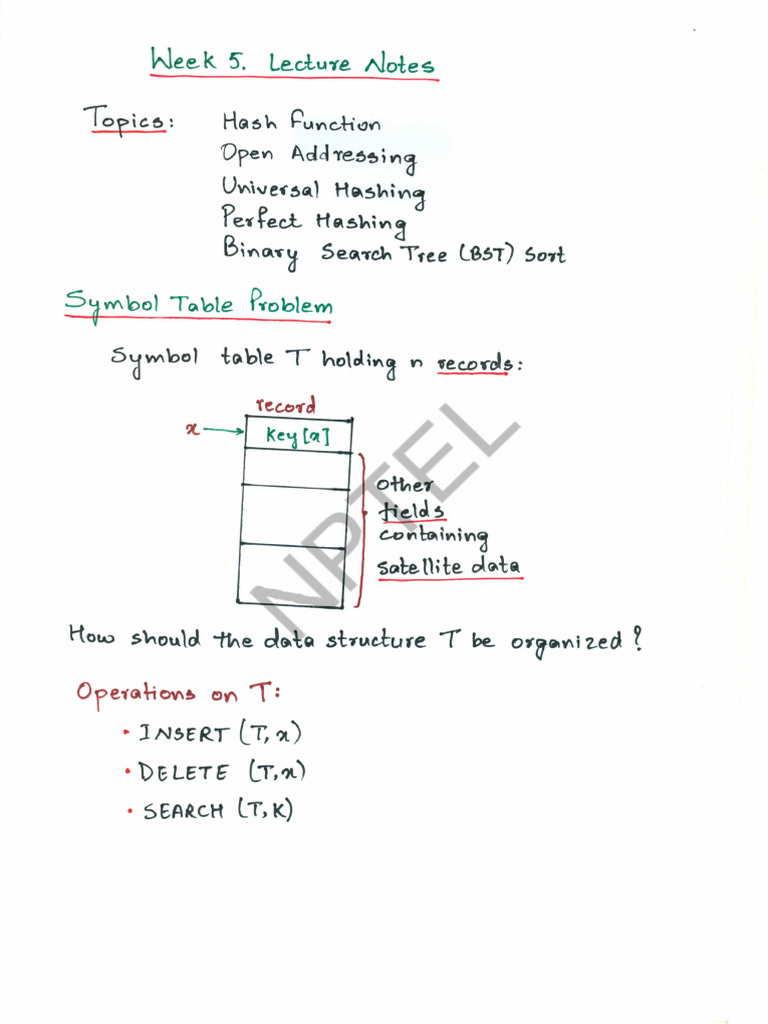 Week 5. Lecture Notes
Topics: Hash Function
Open Addressing
Universal Hashing
Perfect Hashing
Binary Search Tree (BST) Sort
Symbol Table Problem
Symbol table T holding n records:
record
x
key[x]
other
fields
containing
satellite data
NPTEL
How should the data structure T be organized?
Operations on T:
• INSERT (T, x)
• DELETE (T, x)
• SEARCH (T, K)